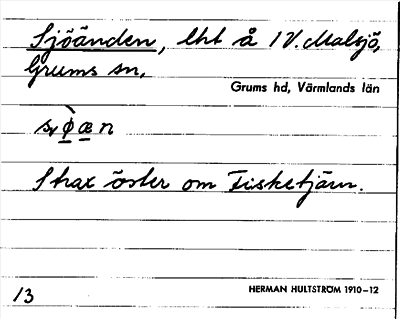 Sjöänden, lht å 1 V. Malsjö,
Grums sn,
Grums hd, Värmlands län
Strax öster om Fisketjärn.
13
HERMAN HULTSTRÖM 1910-12